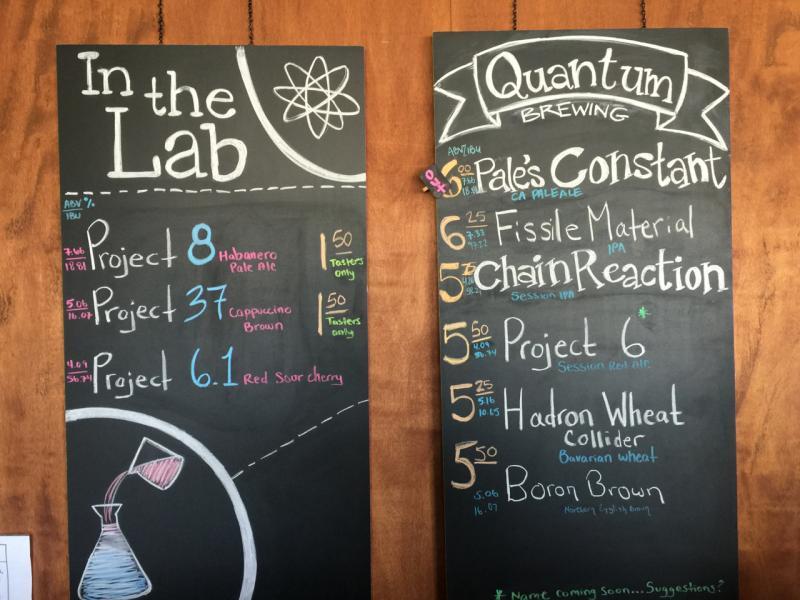 In the
Lab
ABV %
IBU
7.66
18.81
Project 8
Habanero
Pale Ale
1 50
Tasters
only
5.06
16.07
Project 37
Cappuccino
Brown
1 50
Tasters
only
4.09
56.74
Project 6.1 Red Sour cherry
Quantum
BREWING
ABV/IBU
Pale's Constant
CA PALE ALE
6 25
7.33
Fissile Material
IPA
5
Chain Reaction
Session IPA
5 50
4.09
56.74
Project 6*
Session Red Ale
5 25
5.16
10.65
Hadron Wheat
Collider
Bavarian Wheat
5 50
5.06
16.07
Boron Brown
Northern English Brown
* Name coming soon... Suggestions?